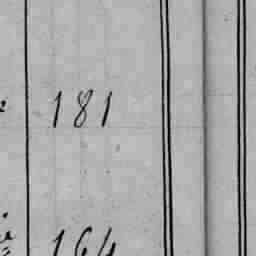 181
164